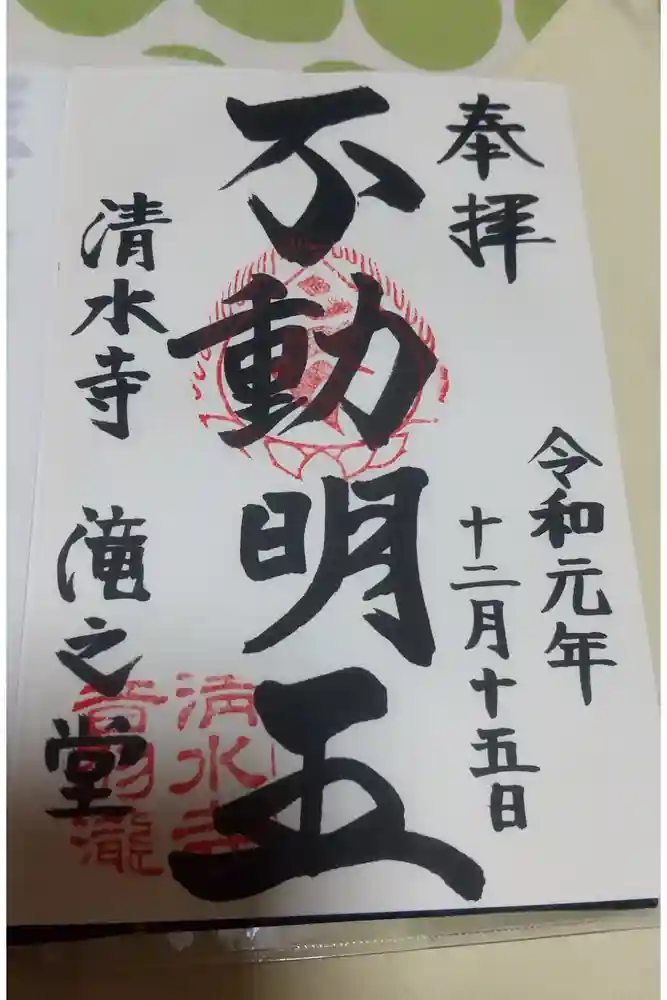 奉拝
令和元年
十二月十五日
不動明五
清水寺 滝之堂
清水寺
音羽瀧